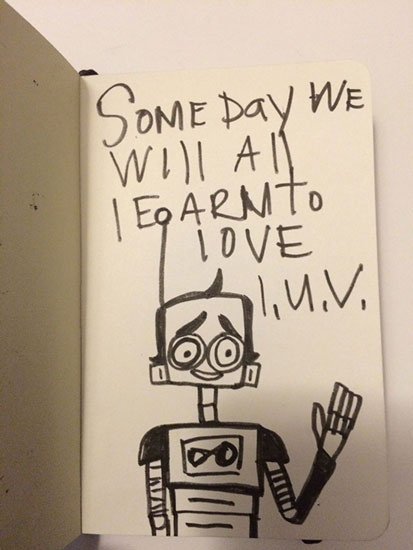 SOME Day WE
Will All
lEARN TO
lOVE
l.U.V.